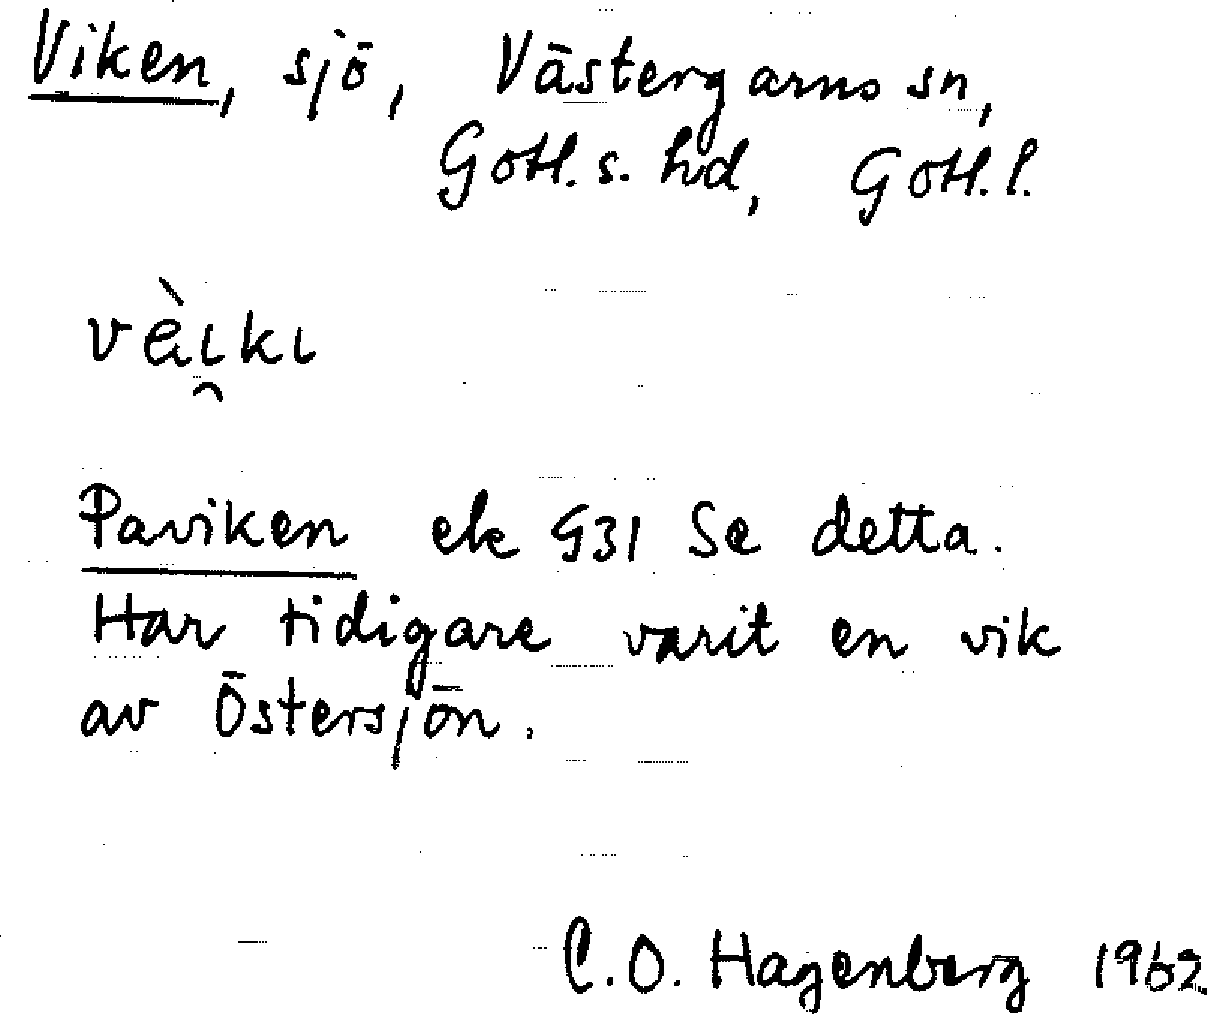 Viken, sjö, Västergarns sn,
Gotl. s. hd, Gotl. l.
vèi̯kı
Paviken ek G31 Se detta.
Har tidigare varit en vik
av Östersjön.
C. O. Hagenberg 1962